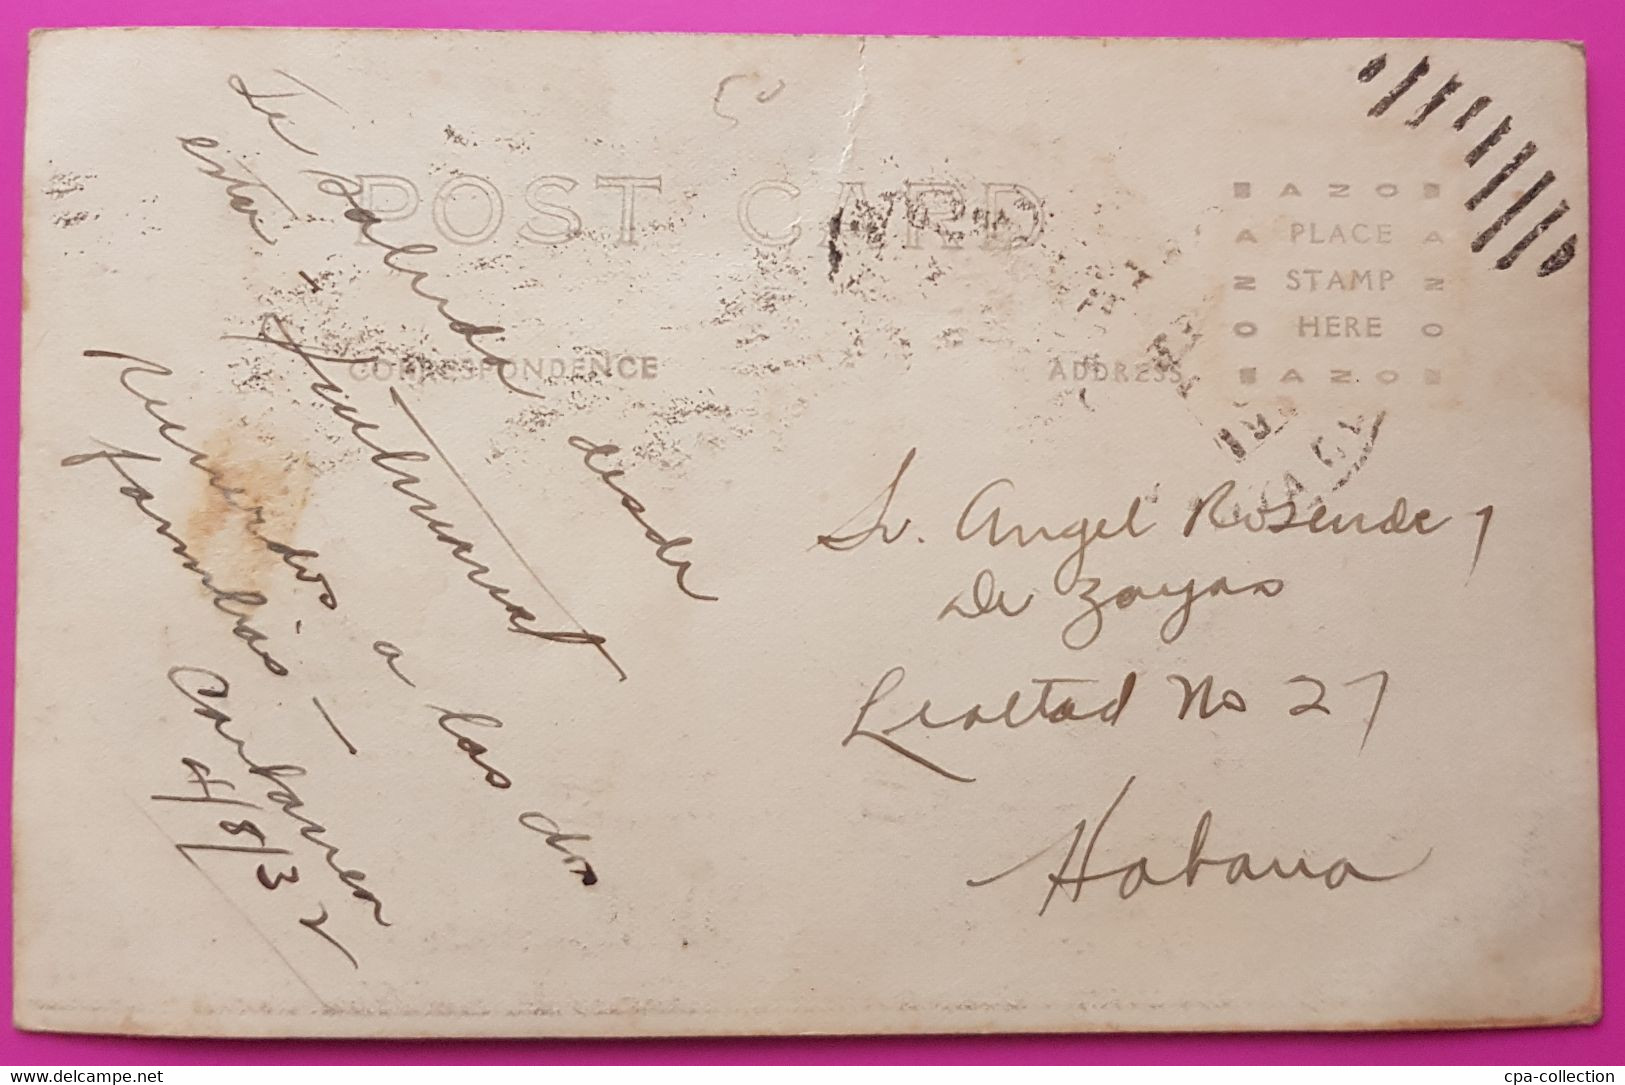 POST CARD
CORRESPONDENCE
ADDRESS
AZO
PLACE
STAMP
HERE
AZO
Te saluda desde
esta
Recuerdos a las dos
familias —
4/8/32
Sr. Angel Rosende y
De Zayas
Lealtad No 27
Habana
www.delcampe.net
cpa-collection